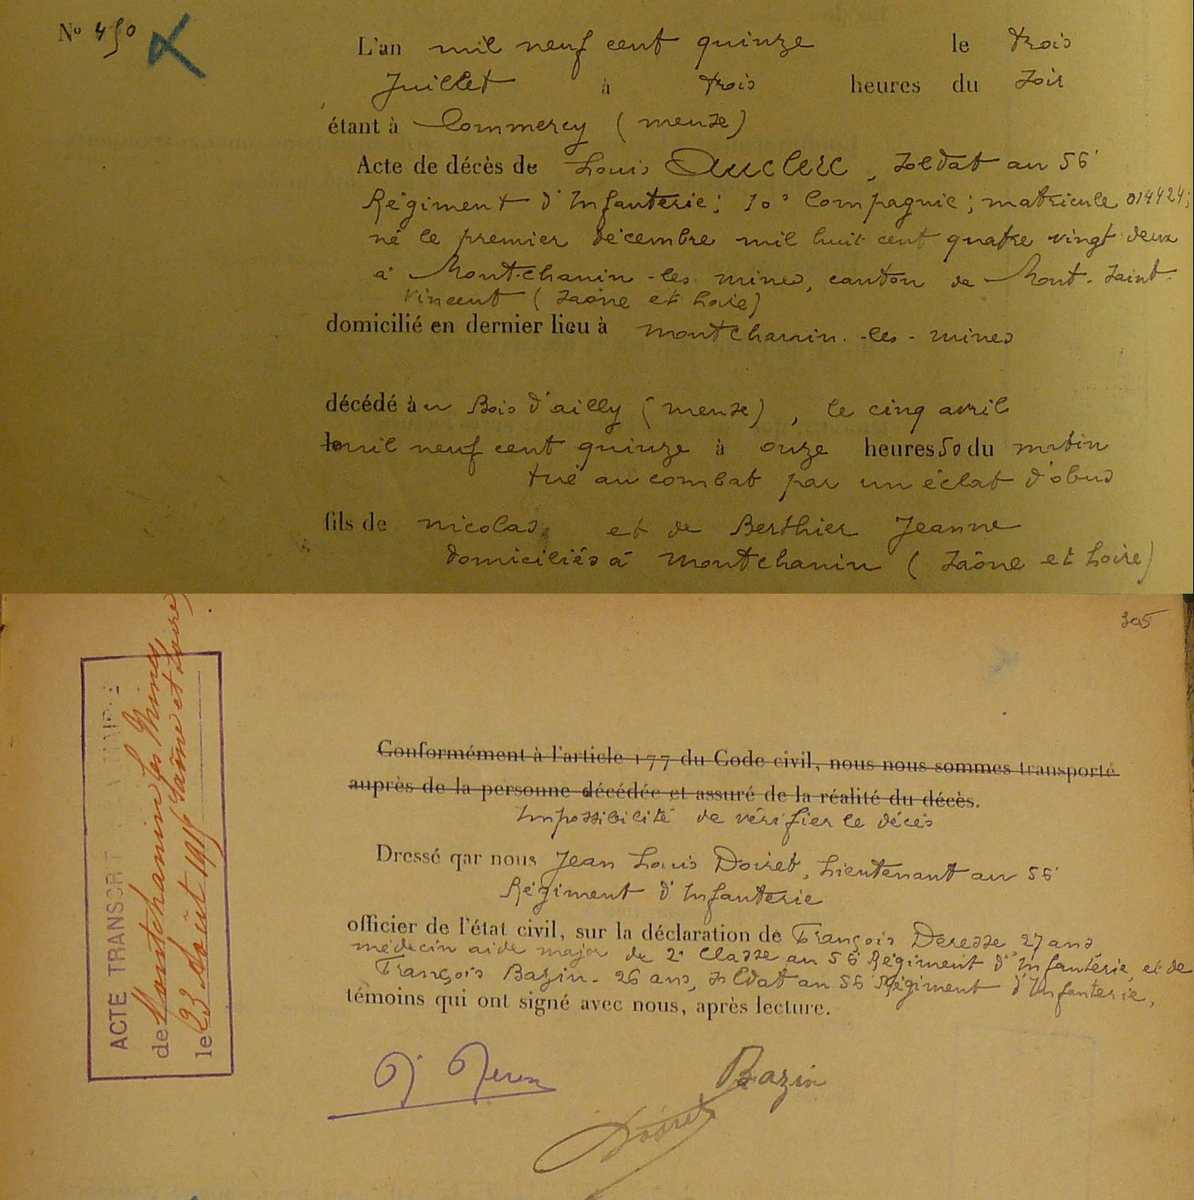 N° 450
L'an mil neuf cent quinze le trois
Juillet à trois heures du soir
étant à Commercy (meuse)
Acte de décès de Louis Auclerc, soldat au 56e
Régiment d'Infanterie; 10e Compagnie; matricule 014424;
né le premier décembre mil huit cent quatre vingt deux
à Montchanin-les-mines, canton de Mont-Saint-
Vincent (Saône et Loire)
domicilié en dernier lieu à montchanin-les-mines
décédé au Bois d'ailly (meuse), le cinq avril
le mil neuf cent quinze à onze heures 50 du matin
tué au combat par un éclat d'obus
fils de nicolas, et de Berthier Jeanne
domiciliés à montchanin (Saône et Loire)
305
Conformément à l'article 77 du Code civil, nous nous sommes transporté
auprès de la personne décédée et assuré de la réalité du décès.
Impossibilité de vérifier le décès
Dressé par nous Jean Louis Doiret, Lieutenant au 56e
Régiment d'Infanterie
officier de l'état civil, sur la déclaration de François Deresse 27 ans
médecin aide major de 2e classe au 56e Régiment d'Infanterie, et de
François Bazin - 26 ans, soldat au 56e Régiment d'Infanterie,
témoins qui ont signé avec nous, après lecture.
Bazin
Doiret
ACTE TRANSCRIT
de Montchanin les Mines (Saône et Loire)
le 23 Août 1915